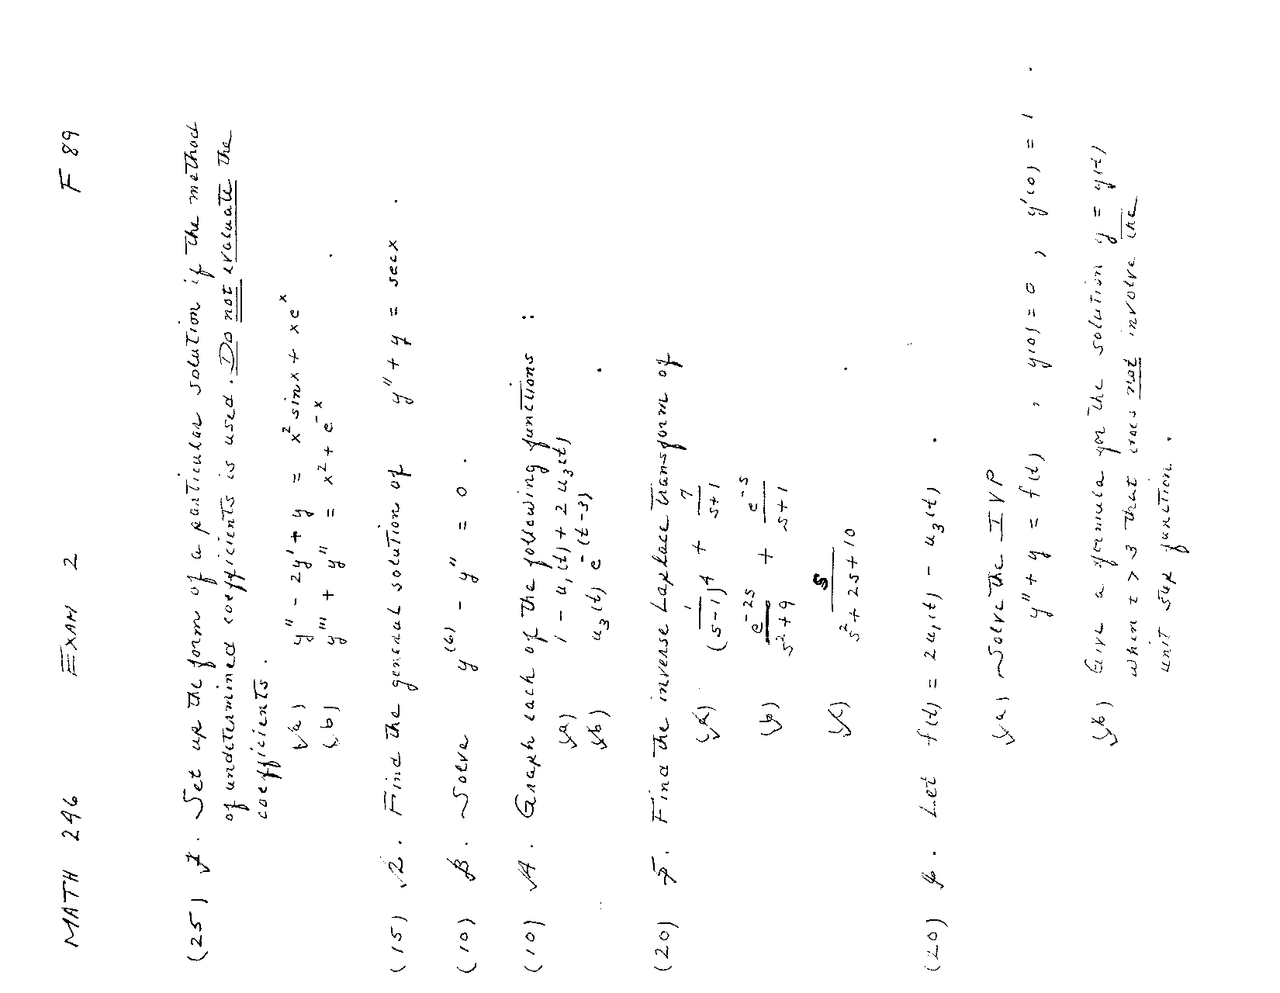 MATH 246 EXAM 2 F 89
(25) 1. Set up the form of a particular solution if the method
of undetermined coefficients is used. Do not evaluate the
coefficients.
(a) y'' - 2y' + y = x² sin x + x eˣ
(b) y''' + y'' = x² + e⁻ˣ .
(15) 2. Find the general solution of y'' + y = sec x .
(10) 3. Solve y⁽⁶⁾ - y'' = 0 .
(10) 4. Graph each of the following functions :
(a) 1 - u₁(t) + 2 u₃(t)
(b) u₃(t) e^-(t-3) .
(20) 5. Find the inverse Laplace transform of
(a) 1/(s-1)⁴ + 7/(s+1)
(b) e^-2s/(s²+9) + e^-s/(s+1)
(c) s/(s²+2s+10) .
(20) 6. Let f(t) = 2u₁(t) - u₃(t) .
(a) Solve the IVP
y'' + y = f(t) , y(0) = 0 , y'(0) = 1 .
(b) Give a formula for the solution y = y(t)
when t > 3 that does not involve the
unit step function .